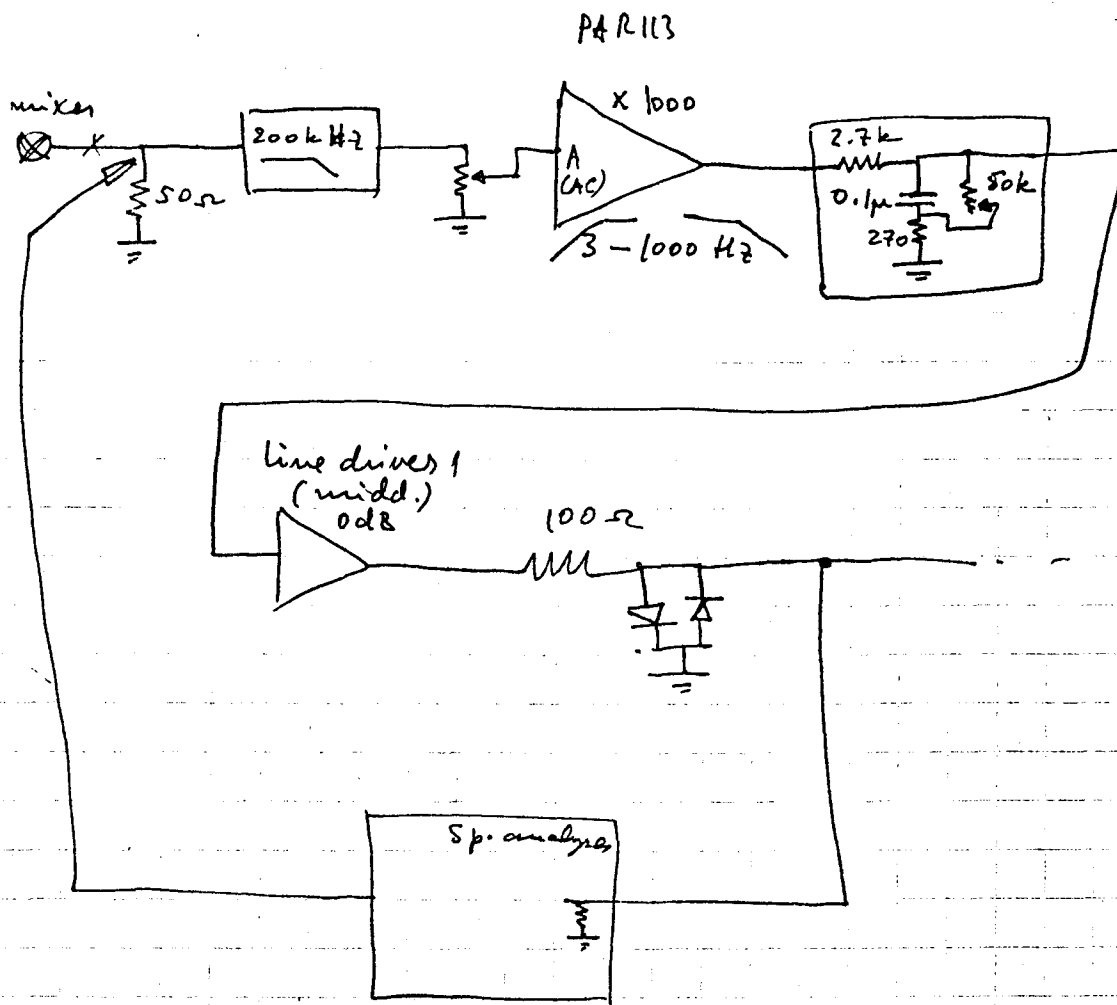 PAR113
mixer
200 kHz
x 1000
A
(AC)
50Ω
3 - 1000 Hz
2.7k
0.1μ
50k
270
line driver 1
(midd.)
0dB
100 Ω
Sp. analyzer